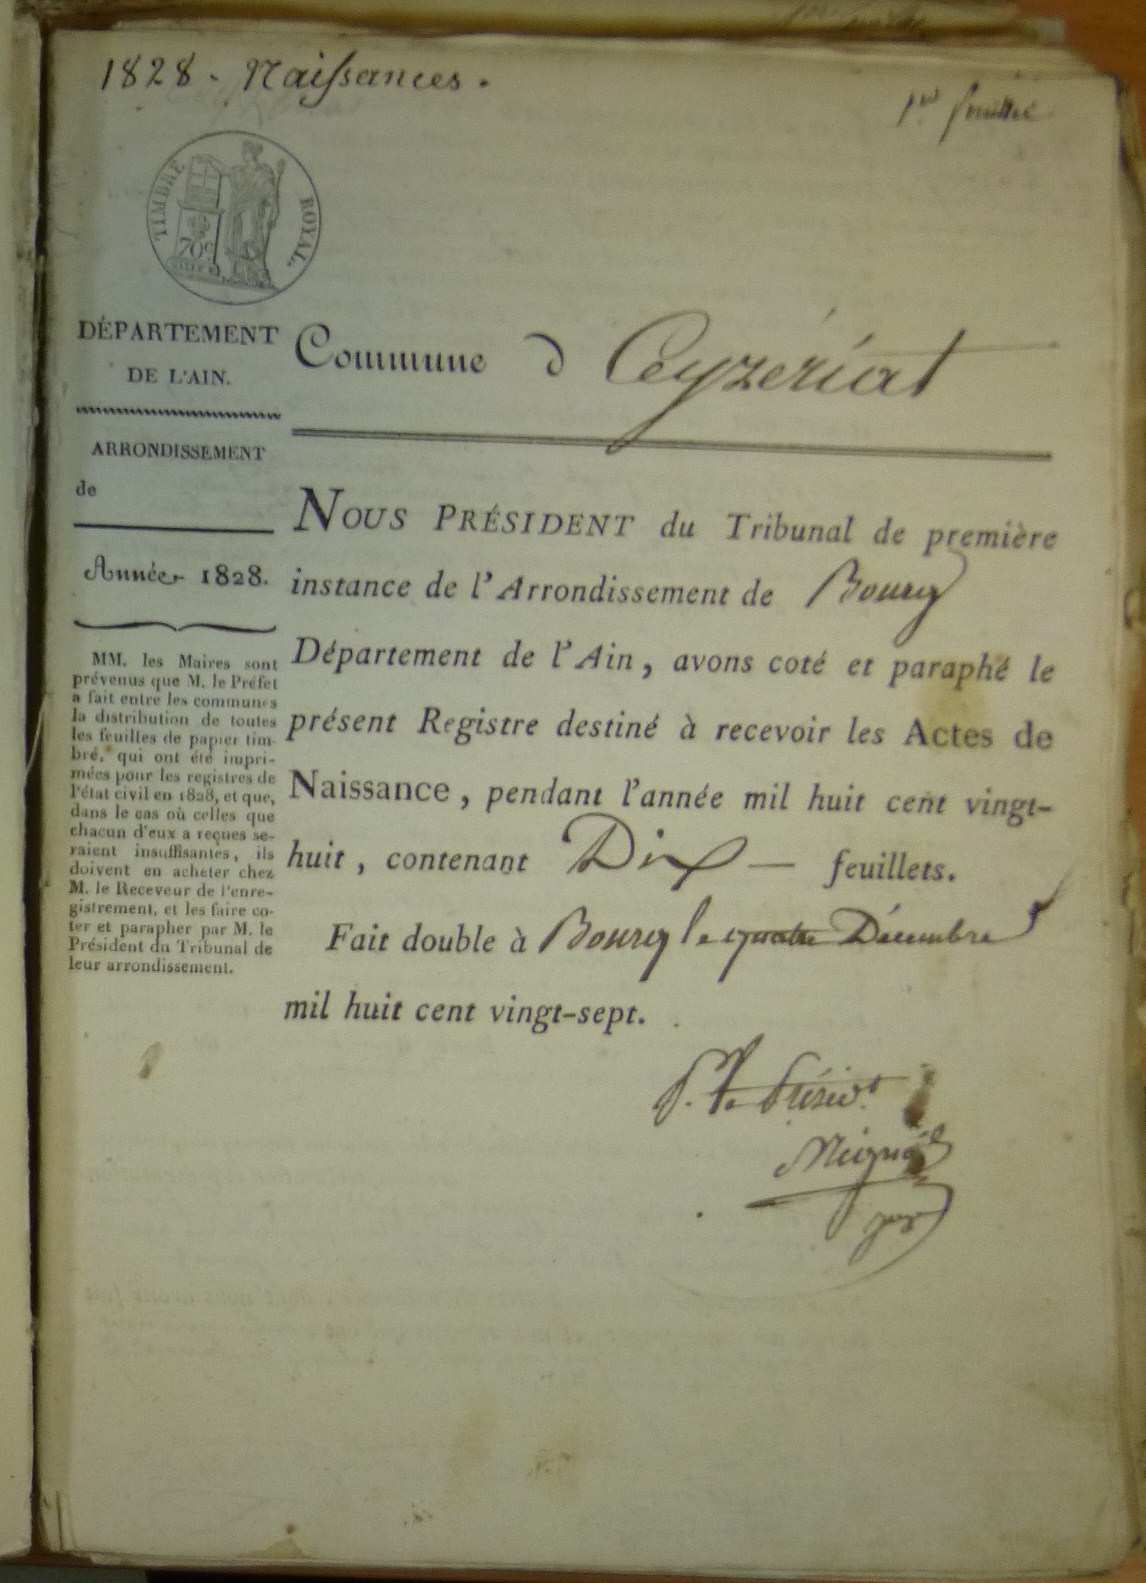 1828. Naissances.
1er feuillet
TIMBRE ROYAL.
70c
DÉPARTEMENT
DE L'AIN.
ARRONDISSEMENT
de
Année 1828.
MM. les Maires sont
prévenus que M. le Préfet
a fait entre les communes
la distribution de toutes
les feuilles de papier tim-
bré, qui ont été impri-
mées pour les registres de
l'état civil en 1828, et que,
dans le cas où celles que
chacun d'eux a reçues se-
raient insuffisantes, ils
doivent en acheter chez
M. le Receveur de l'enre-
gistrement, et les faire co-
ter et parapher par M. le
Président du Tribunal de
leur arrondissement.
Commune d Ceyzeriat
NOUS PRÉSIDENT du Tribunal de première
instance de l'Arrondissement de Bourg
Département de l'Ain, avons coté et paraphé le
présent Registre destiné à recevoir les Actes de
Naissance, pendant l'année mil huit cent vingt-
huit, contenant Dix — feuillets.
Fait double à Bourg le quatre Décembre
mil huit cent vingt-sept.
P. le Présidt.
juge